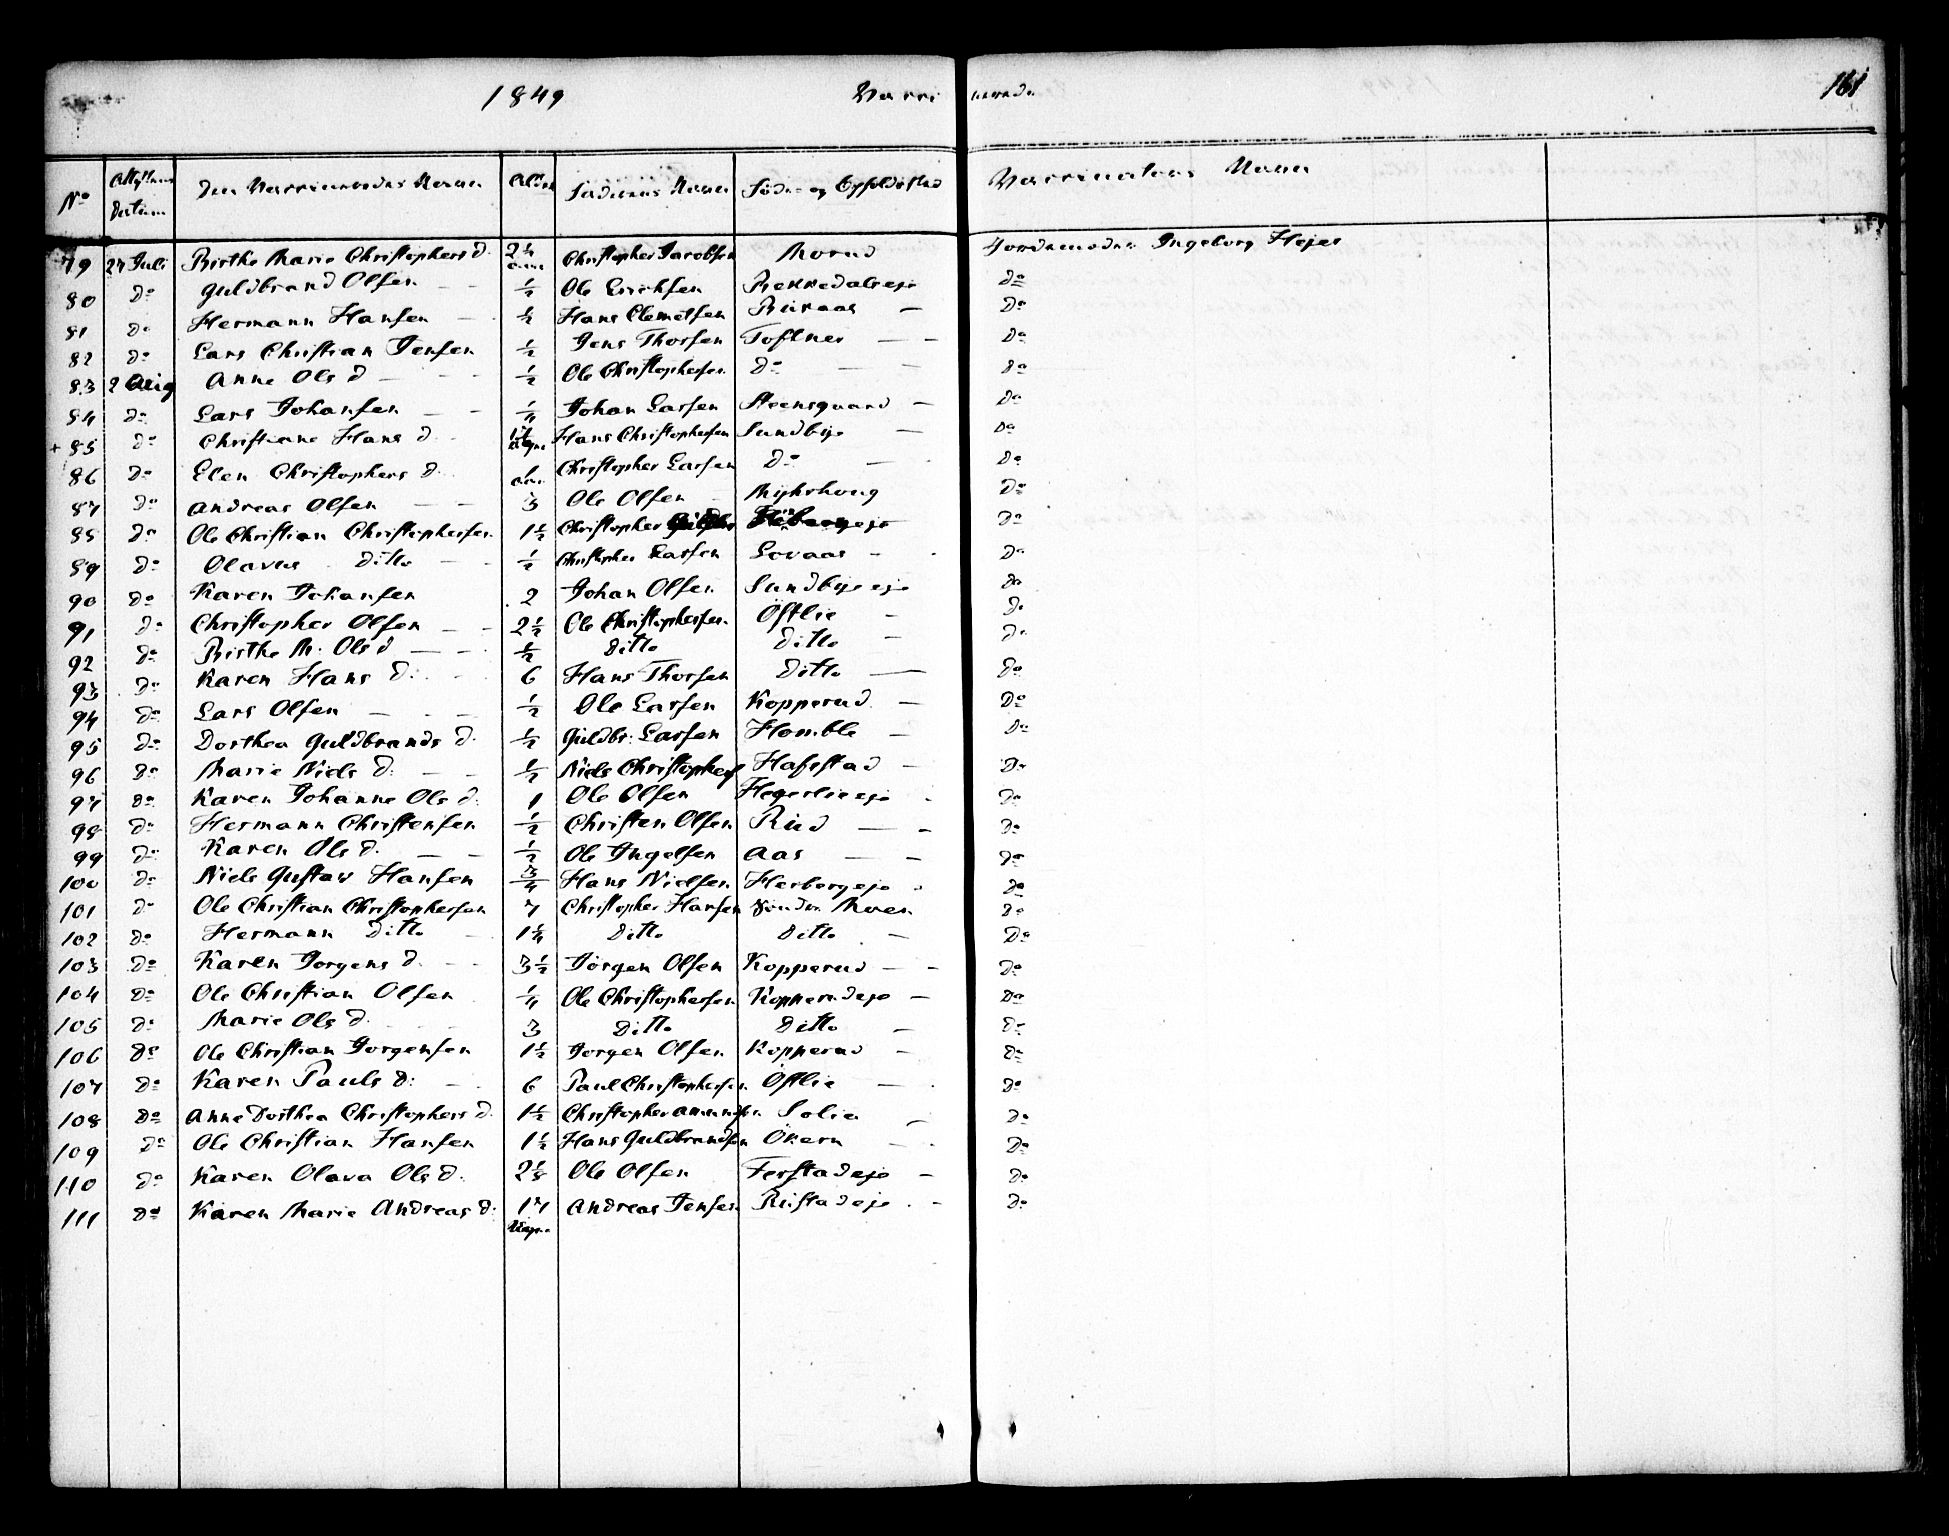 1849 Vaccinerede 161
No Attestens Datum Den Vaccineredes Navn Alder Faderens Navn Føde- og Opholdsted Vaccinateurs Navn
79 27 Juli Birthe Marie Christophers D. 2 1/4 Christopher Jacobsen Morud Jordemoder Ingeborg Hejer
80 Do Guldbrand Olsen — — 1/2 Ole Erichsen Do
81 Do Hermann Hansen — 1/2 Hans Clemetsen — Do
82 Do Lars Christian Jensen 1/2 Jens Thorsen Toftner — — Do
83 2 Aug Anne Ols D — — 1/2 Ole Christophersen Do — — Do
84 Do Lars Johansen — — 1/4 Johan Larsen Steensquard — Do
+ 85 Do Christiane Hans D. 17 Uger Hans Christophersen Sundbye — Do
86 Do Elen Christophers D. Christopher Larsen Do — Do
87 Do Andreas Olsen — — 3 Ole Olsen — Myhrhoug Do
88 Do Ole Christian Christophersen 1 1/2 Christopher Do
89 Do Olavus Ditto — - 1/2 Christopher Larsen Lovaas - Do
90 Do Karen Johansen 2 Johan Olsen Sundbye eje Do
91 Do Christopher Olsen — - 2 1/2 Ole Christophersen Østlie - Do
92 Do Birthe M: Ols D — — 1/2 Ditto Ditto — Do
93 Do Karen Hans D: 6 Hans Thorsen Ditto — Do
94 Do Lars Olsen — — 1/2 Ole Larsen Kopperud — Do
95 Do Dorthea Guldbrands D. 1/2 Guldbr: Larsen Homble — Do
96 Do Marie Niels D: — — 1/2 Niels Christophers Hafstad — Do
97 Do Karen Johanne Ols D. 1 Ole Olsen Hegerlieeje Do
98 Do Hermann Christensen 1/2 Christen Olsen Rud — - Do
99 Do Karen Ols D. — — 1/2 Ole Ingelsen Aas — — Do
100 Do Niels Gustav Hansen 3/4 Hans Nielsen Herbergeje Do
101 Do Ole Christian Christophersen 7 Christopher Hansen Søndre Moen Do
102 Do Hermann Ditto — 1 1/4 Ditto Ditto — Do
103 Do Karen Jorgens D. - - 3 1/2 Jorgen Olsen Kopperud — - Do
104 Do Ole Christian Olsen 1/4 Ole Christophersen Kopperudeje — Do
105 Do Marie Ols D. 3 Ditto Ditto — Do
106 Do Ole Christian Jorgensen 1 1/2 Jorgen Olsen Kopperud — Do
107 Do Karen Pauls D: - 6 Paul Christophersen Østlie — Do
108 Do Anne Dorthea Christophers D. 1 1/2 Christopher Amundsen Solie — Do
109 Do Ole Christian Hansen 1 1/2 Hans Guldbrandsen Økern — Do
110 Do Karen Olava Ols D. Ole Olsen Ferstadeje — Do
111 Do Karen Marie Andreas D: 17 Uger Andreas Jensen Rustadeje - Do